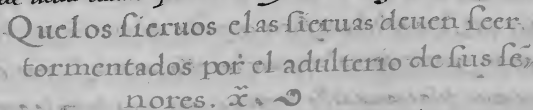 Que los sieruos e las sieruas deuen seer.
tormentados por el adulterio de sus se,
nores. x̃.